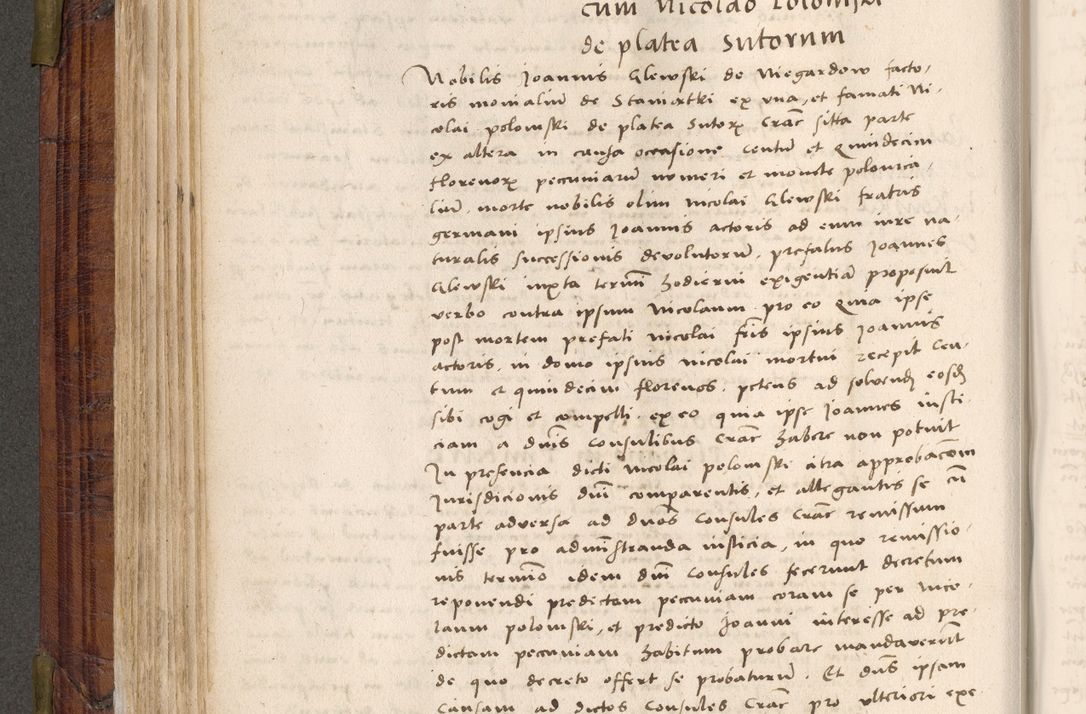 cum Nicolao Polomski
de platea Sutorum
Nobilis Joannis Glewski de Niegardow facto,
ris monialiu de Staniatki ex vna, et famati Ni,
colai polomski de platea Sutorꝝ Crac sitta parte
ex altera in causa occasione Centu et Quindecim
florenorꝝ pecuniaru numeri et monete polonica,
liu, morte nobilis olim Nicolai Glewski fratris
germani ipsius Joannis actoris ad eum iure na,
turalis successionis devolutoru, prefatus Joannes
Glewski iuxta termi hodierni exigentia proposuit
verbo contra ipsum Nicolaum pro eo Quia ipse
post mortem prefati nicolai fris ipsius Joannis
actoris, in domo ipsius nicolai mortui recepit Cen,
tum et quindecim florenos, petens ad solvend eosd
sibi cogi et compelli, ex eo quia ipse Joannes iusti,
ciam a dnis Consulibus Crac habere non potuit
In presencia dicti Nicolai polomski citra approbacom
Jurisdicionis dni comparentis, et allegantis se cu
parte adversa ad dnos Consules Crac remissum
fuisse pro administranda iusticia, in quo remissio,
nis termino idem dni Consules fecerunt decretum
reponendi predictam pecuniam coram se per Nico,
laum polomski, et predicto Joanni interesse ad pre,
dictam pecuniam habitum probare mandaverut
de quo decreto offert se probaturu. Et dns ipsam
Causam ad dictos Consules Crac pro vlteriori exe